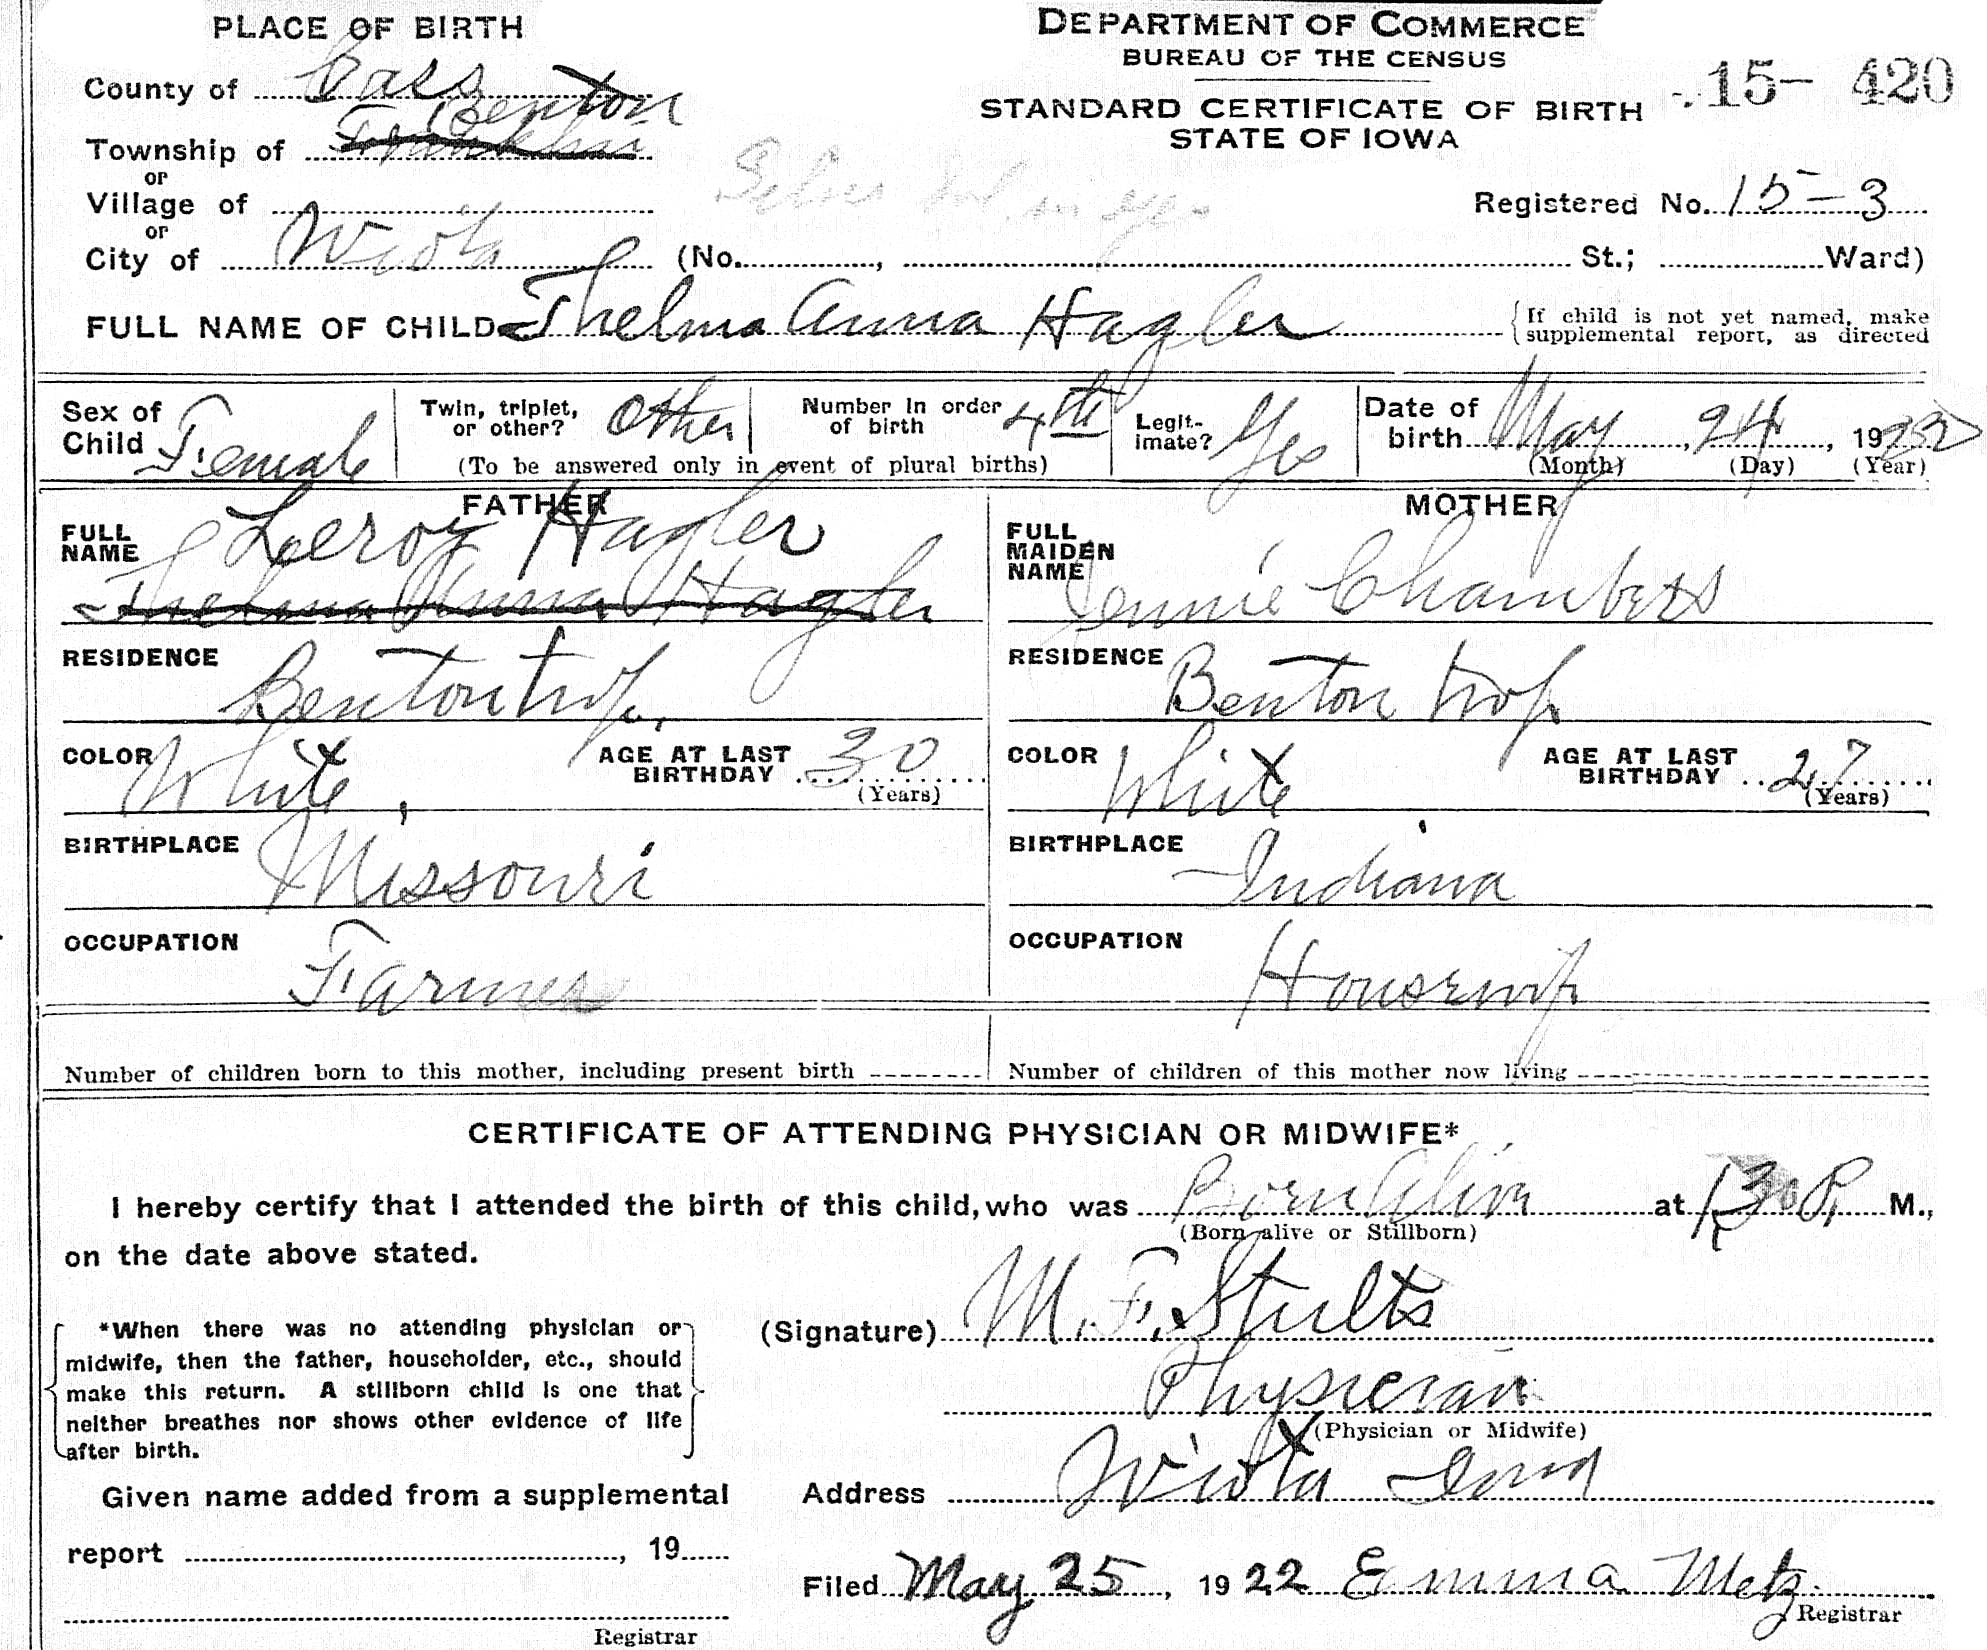 PLACE OF BIRTH
County of Cass
Benton
Township of Franklin
or
Village of
or
City of Wiota (No. , St.; Ward)
DEPARTMENT OF COMMERCE
BUREAU OF THE CENSUS
STANDARD CERTIFICATE OF BIRTH
STATE OF IOWA
15- 420
Registered No. 15-3
FULL NAME OF CHILD Thelma Anna Hagler
If child is not yet named, make
supplemental report, as directed
Sex of
Child Female
Twin, triplet,
or other? Other
Number in order
of birth 4th
(To be answered only in event of plural births)
Legit-
imate? Yes
Date of
birth May, 24, 1922
(Month) (Day) (Year)
FATHER
FULL
NAME
Leroy Hagler
Thelma Anna Hagler
RESIDENCE
Benton twp.
COLOR White,
AGE AT LAST
BIRTHDAY 30
(Years)
BIRTHPLACE
Missouri
OCCUPATION
Farmer
MOTHER
FULL
MAIDEN
NAME
Jennie Chambers
RESIDENCE
Benton twp
COLOR White
AGE AT LAST
BIRTHDAY 27
(Years)
BIRTHPLACE
Indiana
OCCUPATION
Housewife
Number of children born to this mother, including present birth
Number of children of this mother now living
CERTIFICATE OF ATTENDING PHYSICIAN OR MIDWIFE*
I hereby certify that I attended the birth of this child, who was Born Alive at 1:30 P. M.,
(Born alive or Stillborn)
on the date above stated.
*When there was no attending physician or
midwife, then the father, householder, etc., should
make this return. A stillborn child is one that
neither breathes nor shows other evidence of life
after birth.
(Signature) M. F. Stults
Physician
(Physician or Midwife)
Address Wiota Iowa
Given name added from a supplemental
report , 19
Registrar
Filed May 25, 1922 Emma Metz.
Registrar